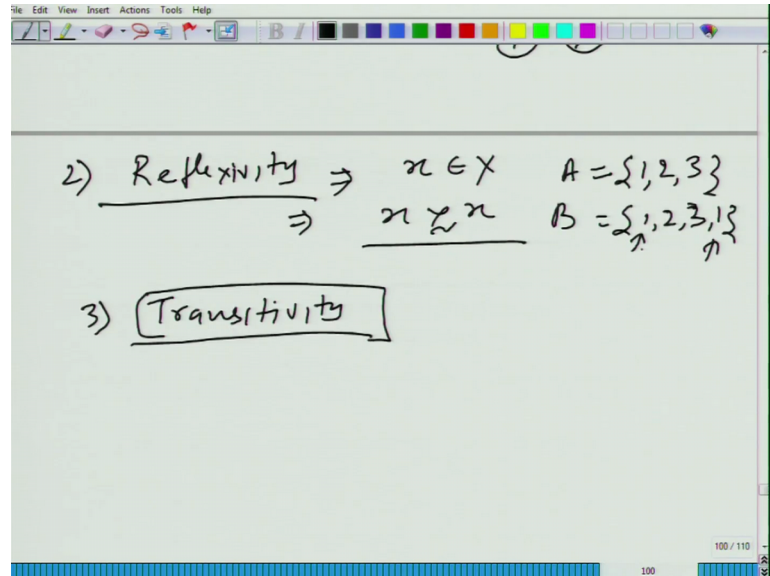 File Edit View Insert Actions Tools Help
2) Reflexivity ⇒ x ∈ X A = {1, 2, 3}
⇒ x ≿ x B = {1, 2, 3, 1}
3) Transitivity
100 / 110
100